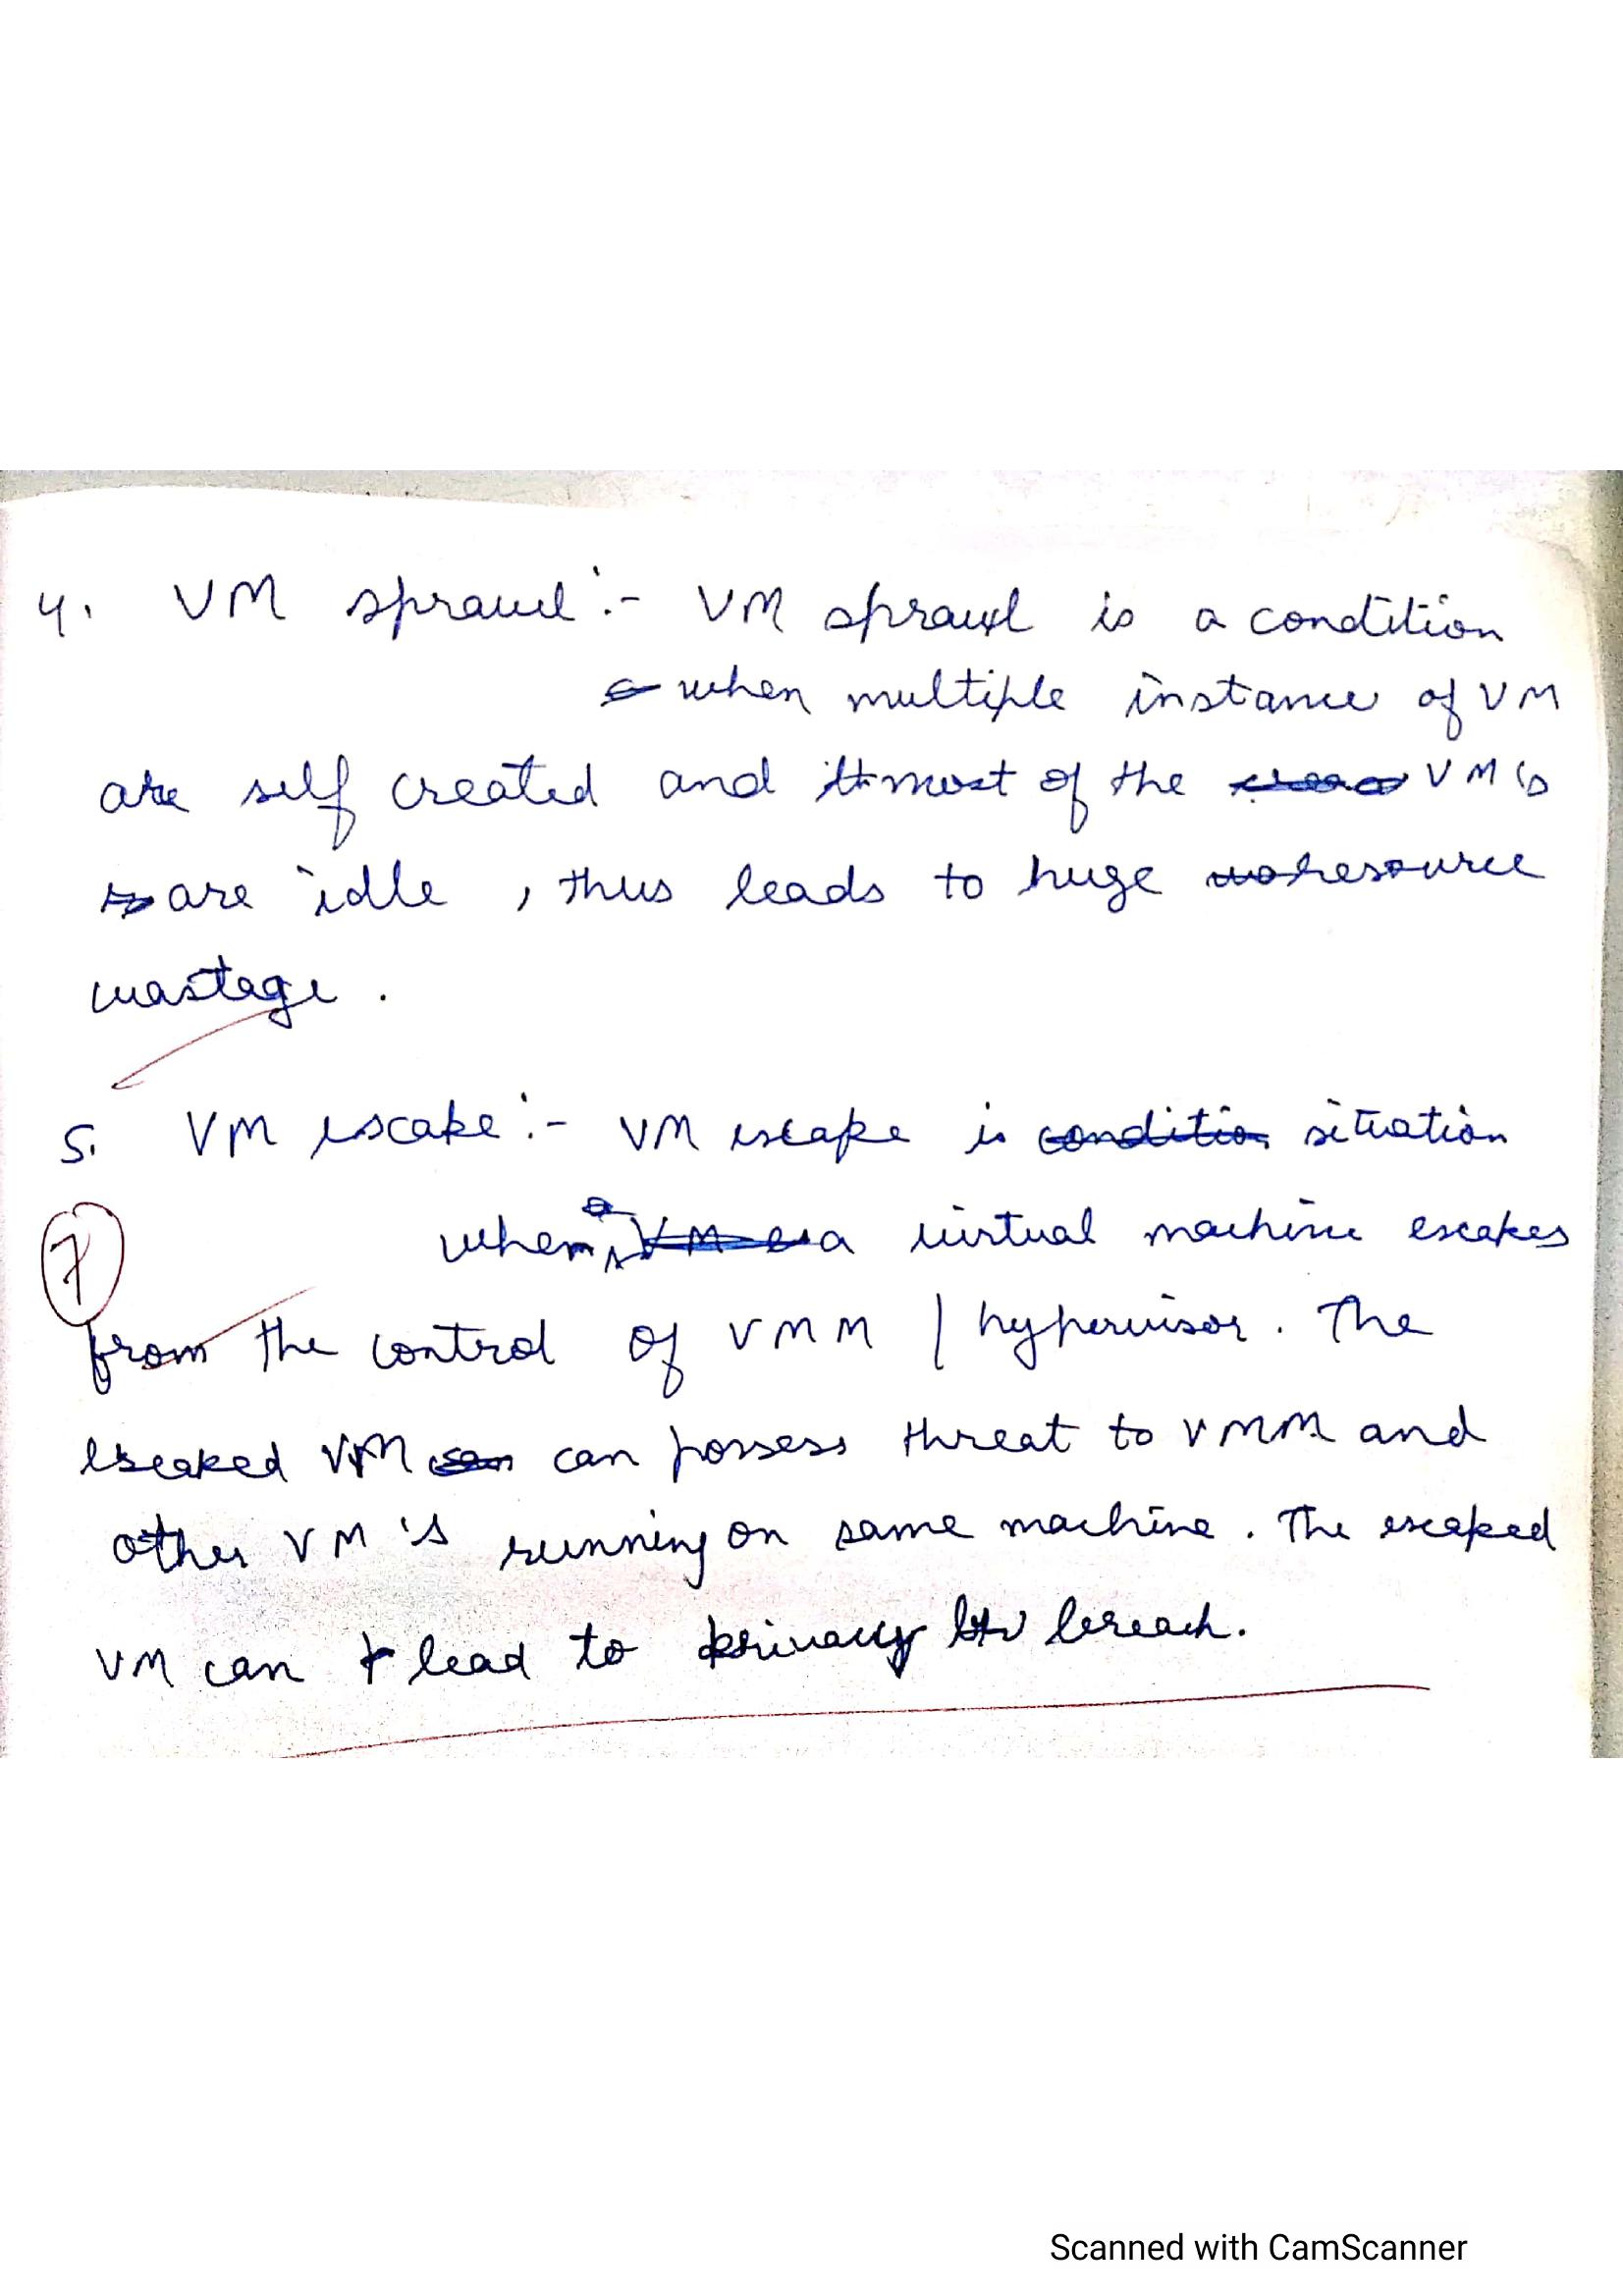 4. VM sprawl :- VM sprawl is a condition
when multiple instance of VM
are self created and most of the VM's
are idle, thus leads to huge resource
wastage.
5. VM escape :- VM escape is situation
when a virtual machine escapes
7
from the control of VMM / hypervisor. The
escaped VM can possess threat to VMM and
other VM's running on same machine. The escaped
VM can lead to privacy breach.
Scanned with CamScanner